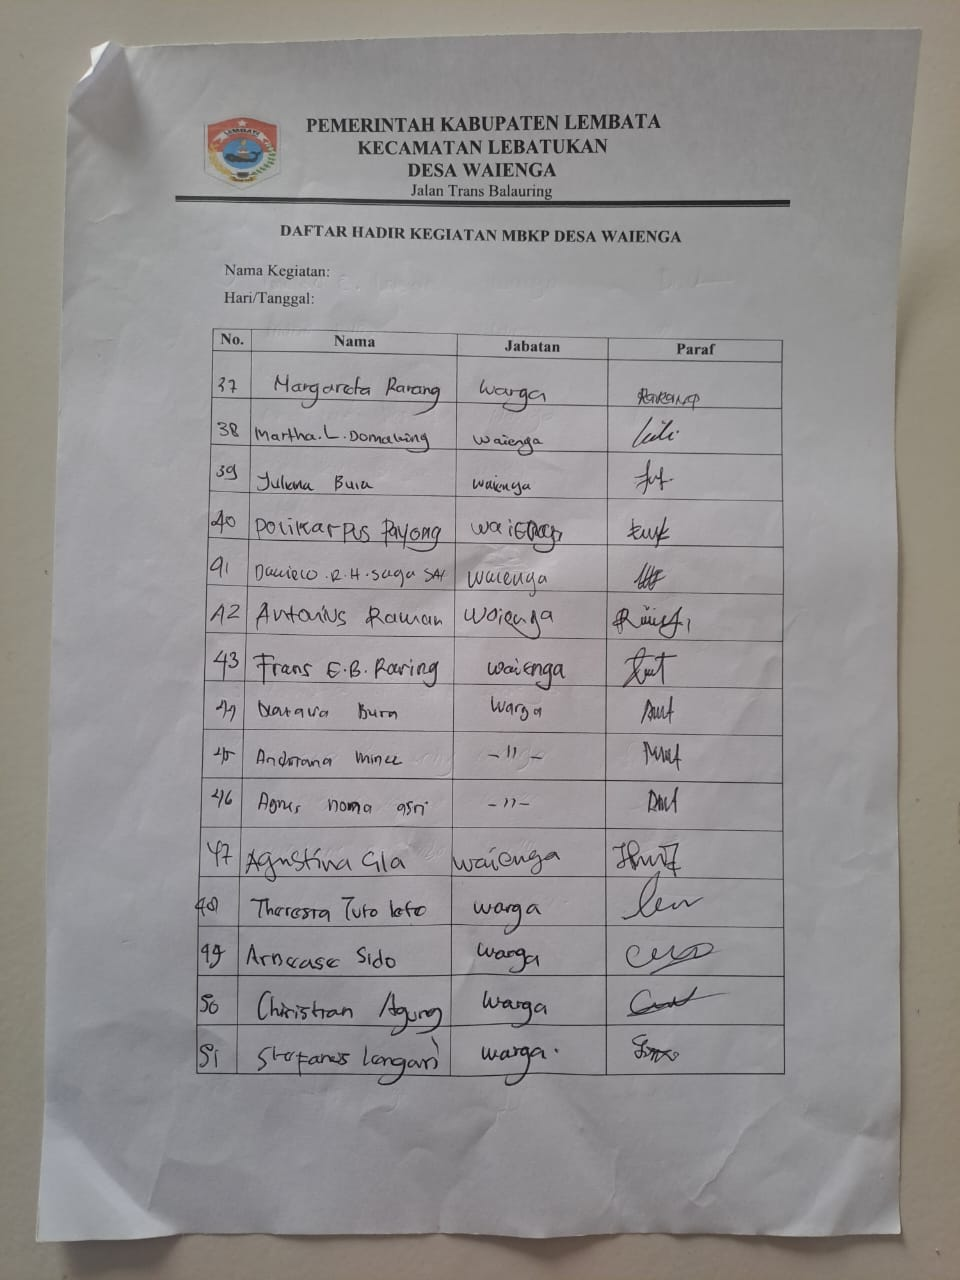 LEMBATA
PEMERINTAH KABUPATEN LEMBATA
KECAMATAN LEBATUKAN
DESA WAIENGA
Jalan Trans Balauring
DAFTAR HADIR KEGIATAN MBKP DESA WAIENGA
Nama Kegiatan:
Hari/Tanggal:
No. Nama Jabatan Paraf
37 Margareta Rarang Warga RARANG
38 Martha.L.Domaking waienga
39 Yuliana Bura waienya
40 Polikarpus Payong
41 .R.H. waienga
42 Antonius Rawan Waienga
43 Frans E.B. Raring waienga
44 Bura Warga
45 mince -"-
46 Agnes noma asri -"-
47 Agustina Gla waienga
48 Theresia Tuto warga
49 Sido warga
50 Christian Agung warga
51 Stefanus warga.